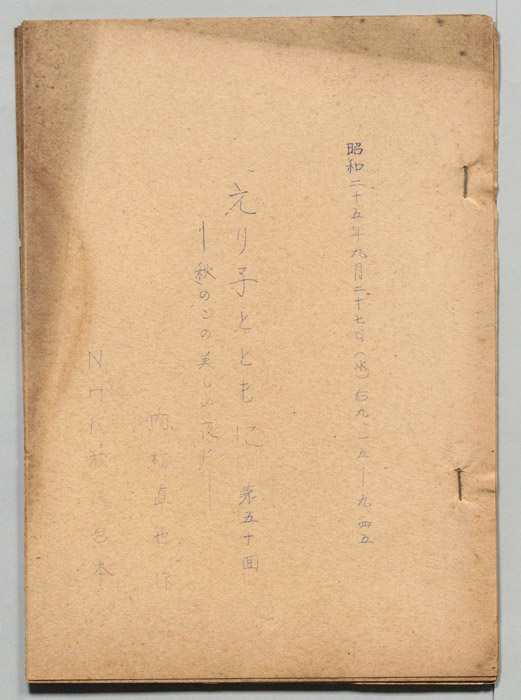 昭和二十五年九月二十七日(水)后九・一五―九・四五
えり子とともに 第五十回
―秋のこの美しい夜に―
内村直也作
NHK放送台本